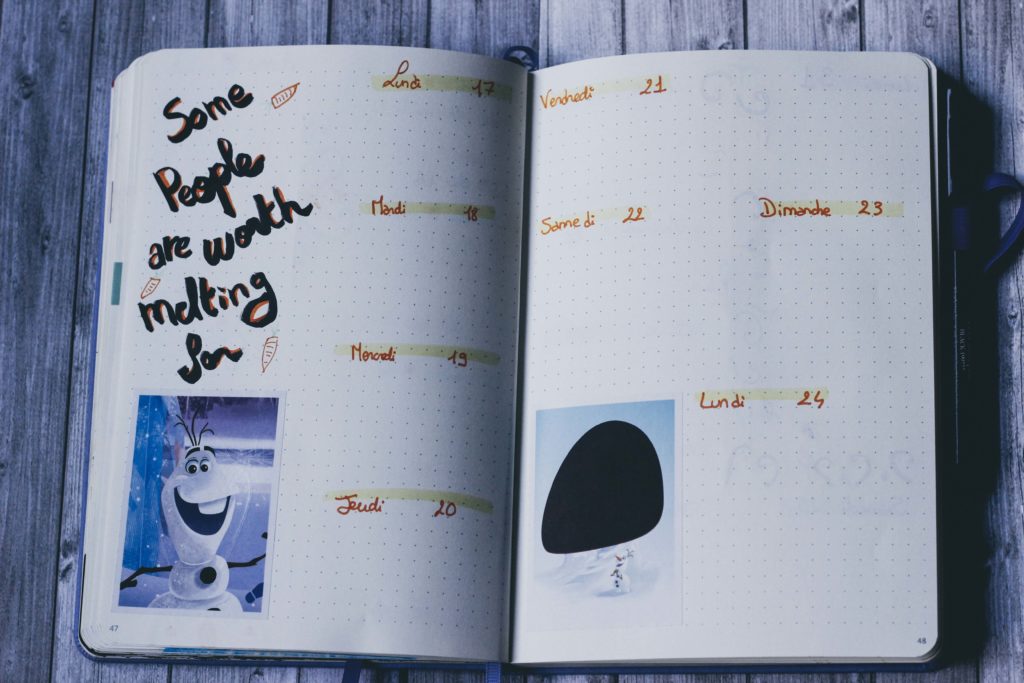 Some
People
are worth
melting
for
Lundi 17
Mardi 18
Mercredi 19
Jeudi 20
47
Vendredi 21
Samedi 22
Dimanche 23
Lundi 24
48